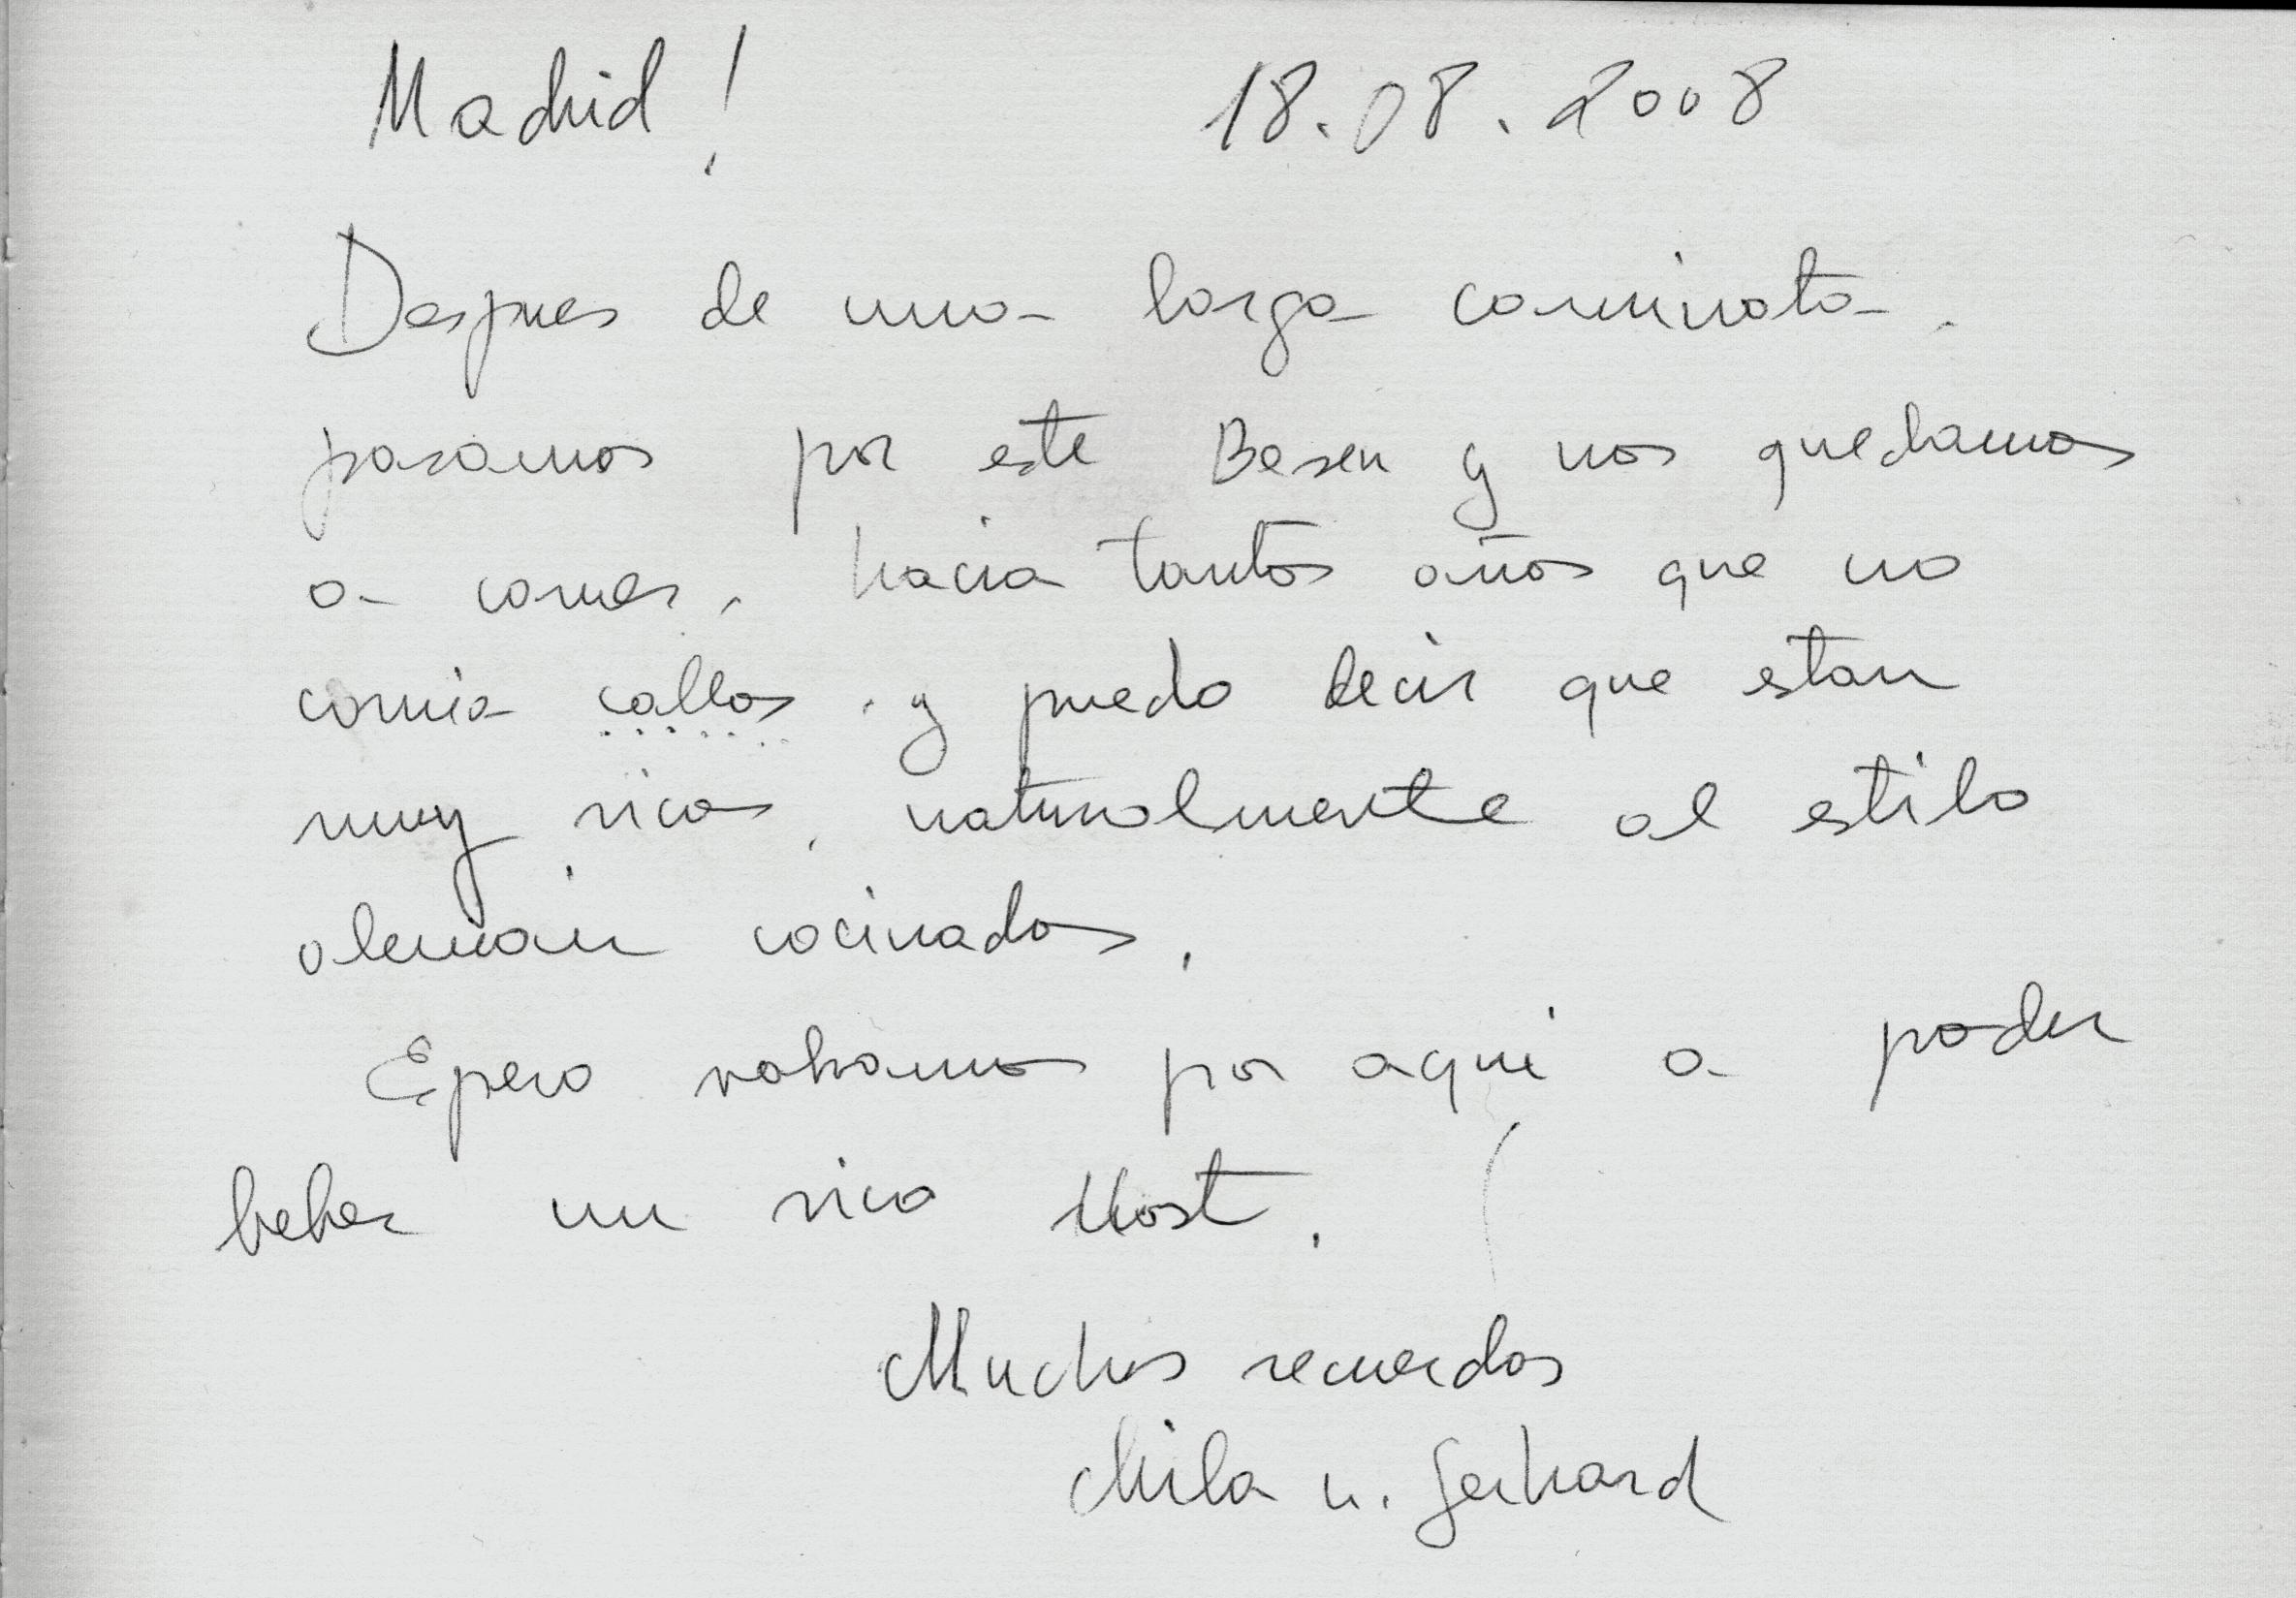 Madrid! 18.08.2008
Despues de una larga caminata.
pasamos por este Besen y nos quedamos
a comer, hacia tantos años que no
comia callos. y puedo decir que estan
muy ricos, naturalmente al estilo
alemán cocinados.
Epero vohamos por aquí a poder
beber un rico Most.
Muchos recuerdos
Mila u. Gerhard